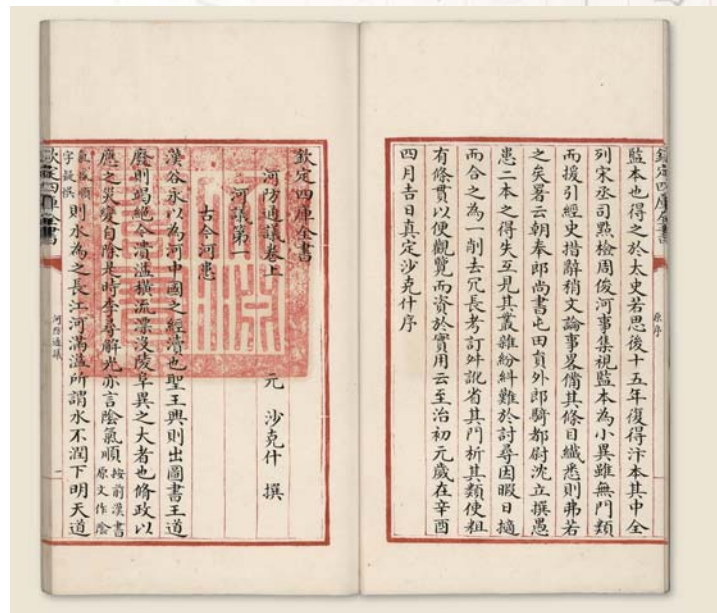 欽定四庫全書
原序
監本也得之於太史若思後十五年復得汴本其中全
列宋丞司點檢周俊河事集視監本為小異雖無門類
而援引經史措辭稍文論事畧備其條目纎悉則弗若
之矣署云朝奉郎尚書屯田員外郎騎都尉沈立撰愚
患二本之得失互見其叢雜紛糾難於討尋因暇日擿
而合之為一削去冗長考訂舛訛省其門析其類使粗
有條貫以便觀覽而資於實用云至治初元歲在辛酉
四月吉日真定沙克什序
欽定四庫全書
河防通議卷上
元 沙克什 撰
河議第一
古今河患
漢谷永以為河中國之經瀆也聖王興則出圖書王道
廢則竭絶今潰溢橫流漂沒陵阜異之大者也脩政以
應之災變自除是時李尋解光亦言陰氣順按前漢書原文作陰
氣盛順字疑誤則水為之長江河滿溢所謂水不潤下明天道
欽定四庫全書
河防通議
一